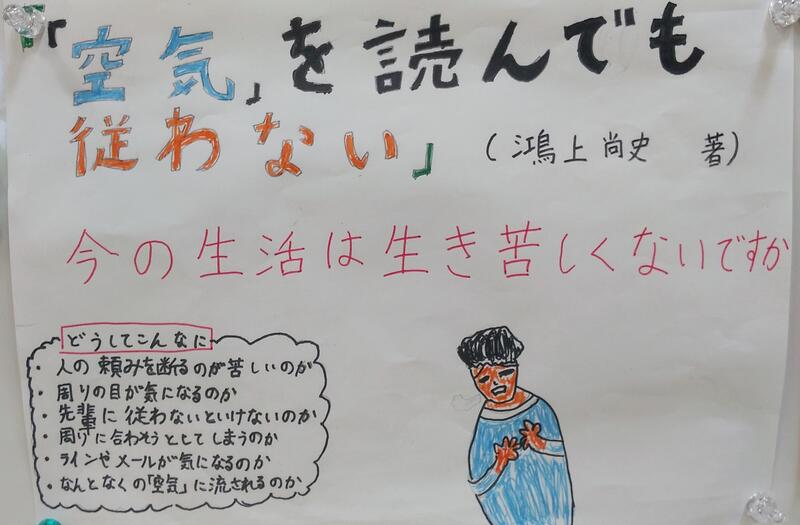 「「空気」を読んでも
従わない」
(鴻上尚史 著)
今の生活は生き苦しくないですか
どうしてこんなに
・人の頼みを断るのが苦しいのか
・周りの目が気になるのか
・先輩に従わないといけないのか
・周りに合わそうとしてしまうのか
・ラインやメールが気になるのか
・なんとなくの「空気」に流されるのか